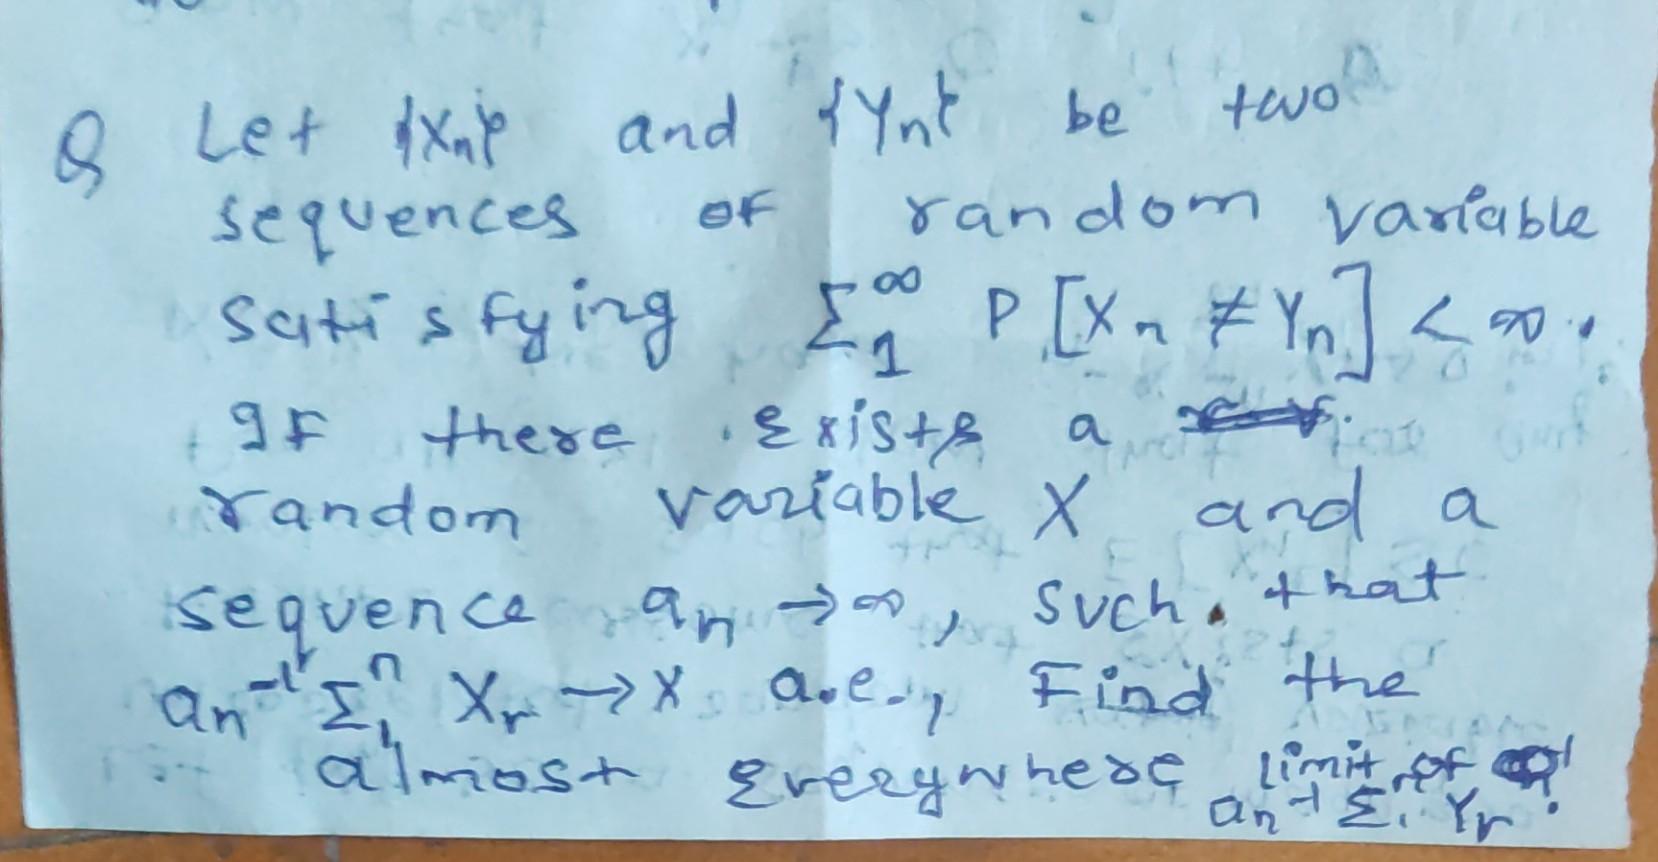 Q Let {Xn} and {Yn} be two
sequences of random variable
satisfying Σ₁^∞ P[Xn ≠ Yn] < ∞.
If there Exists a
random variable X and a
sequence an → ∞, such that
an⁻¹ Σ₁ⁿ Xr → X a.e., Find the
almost Everywhere limit of
an⁻¹ Σ₁ⁿ Yr.